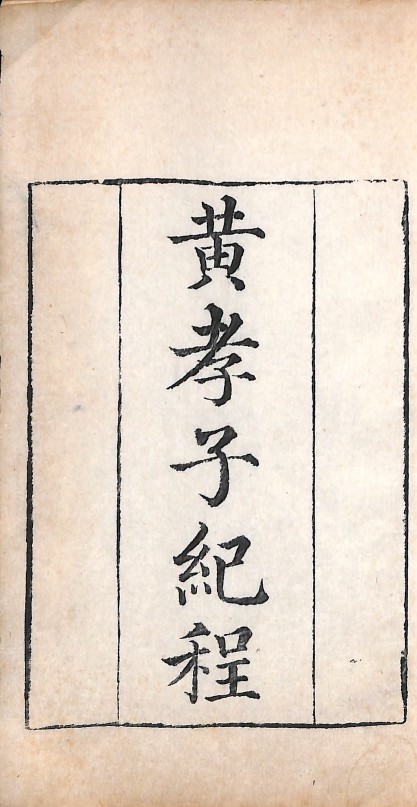 黄孝子紀程